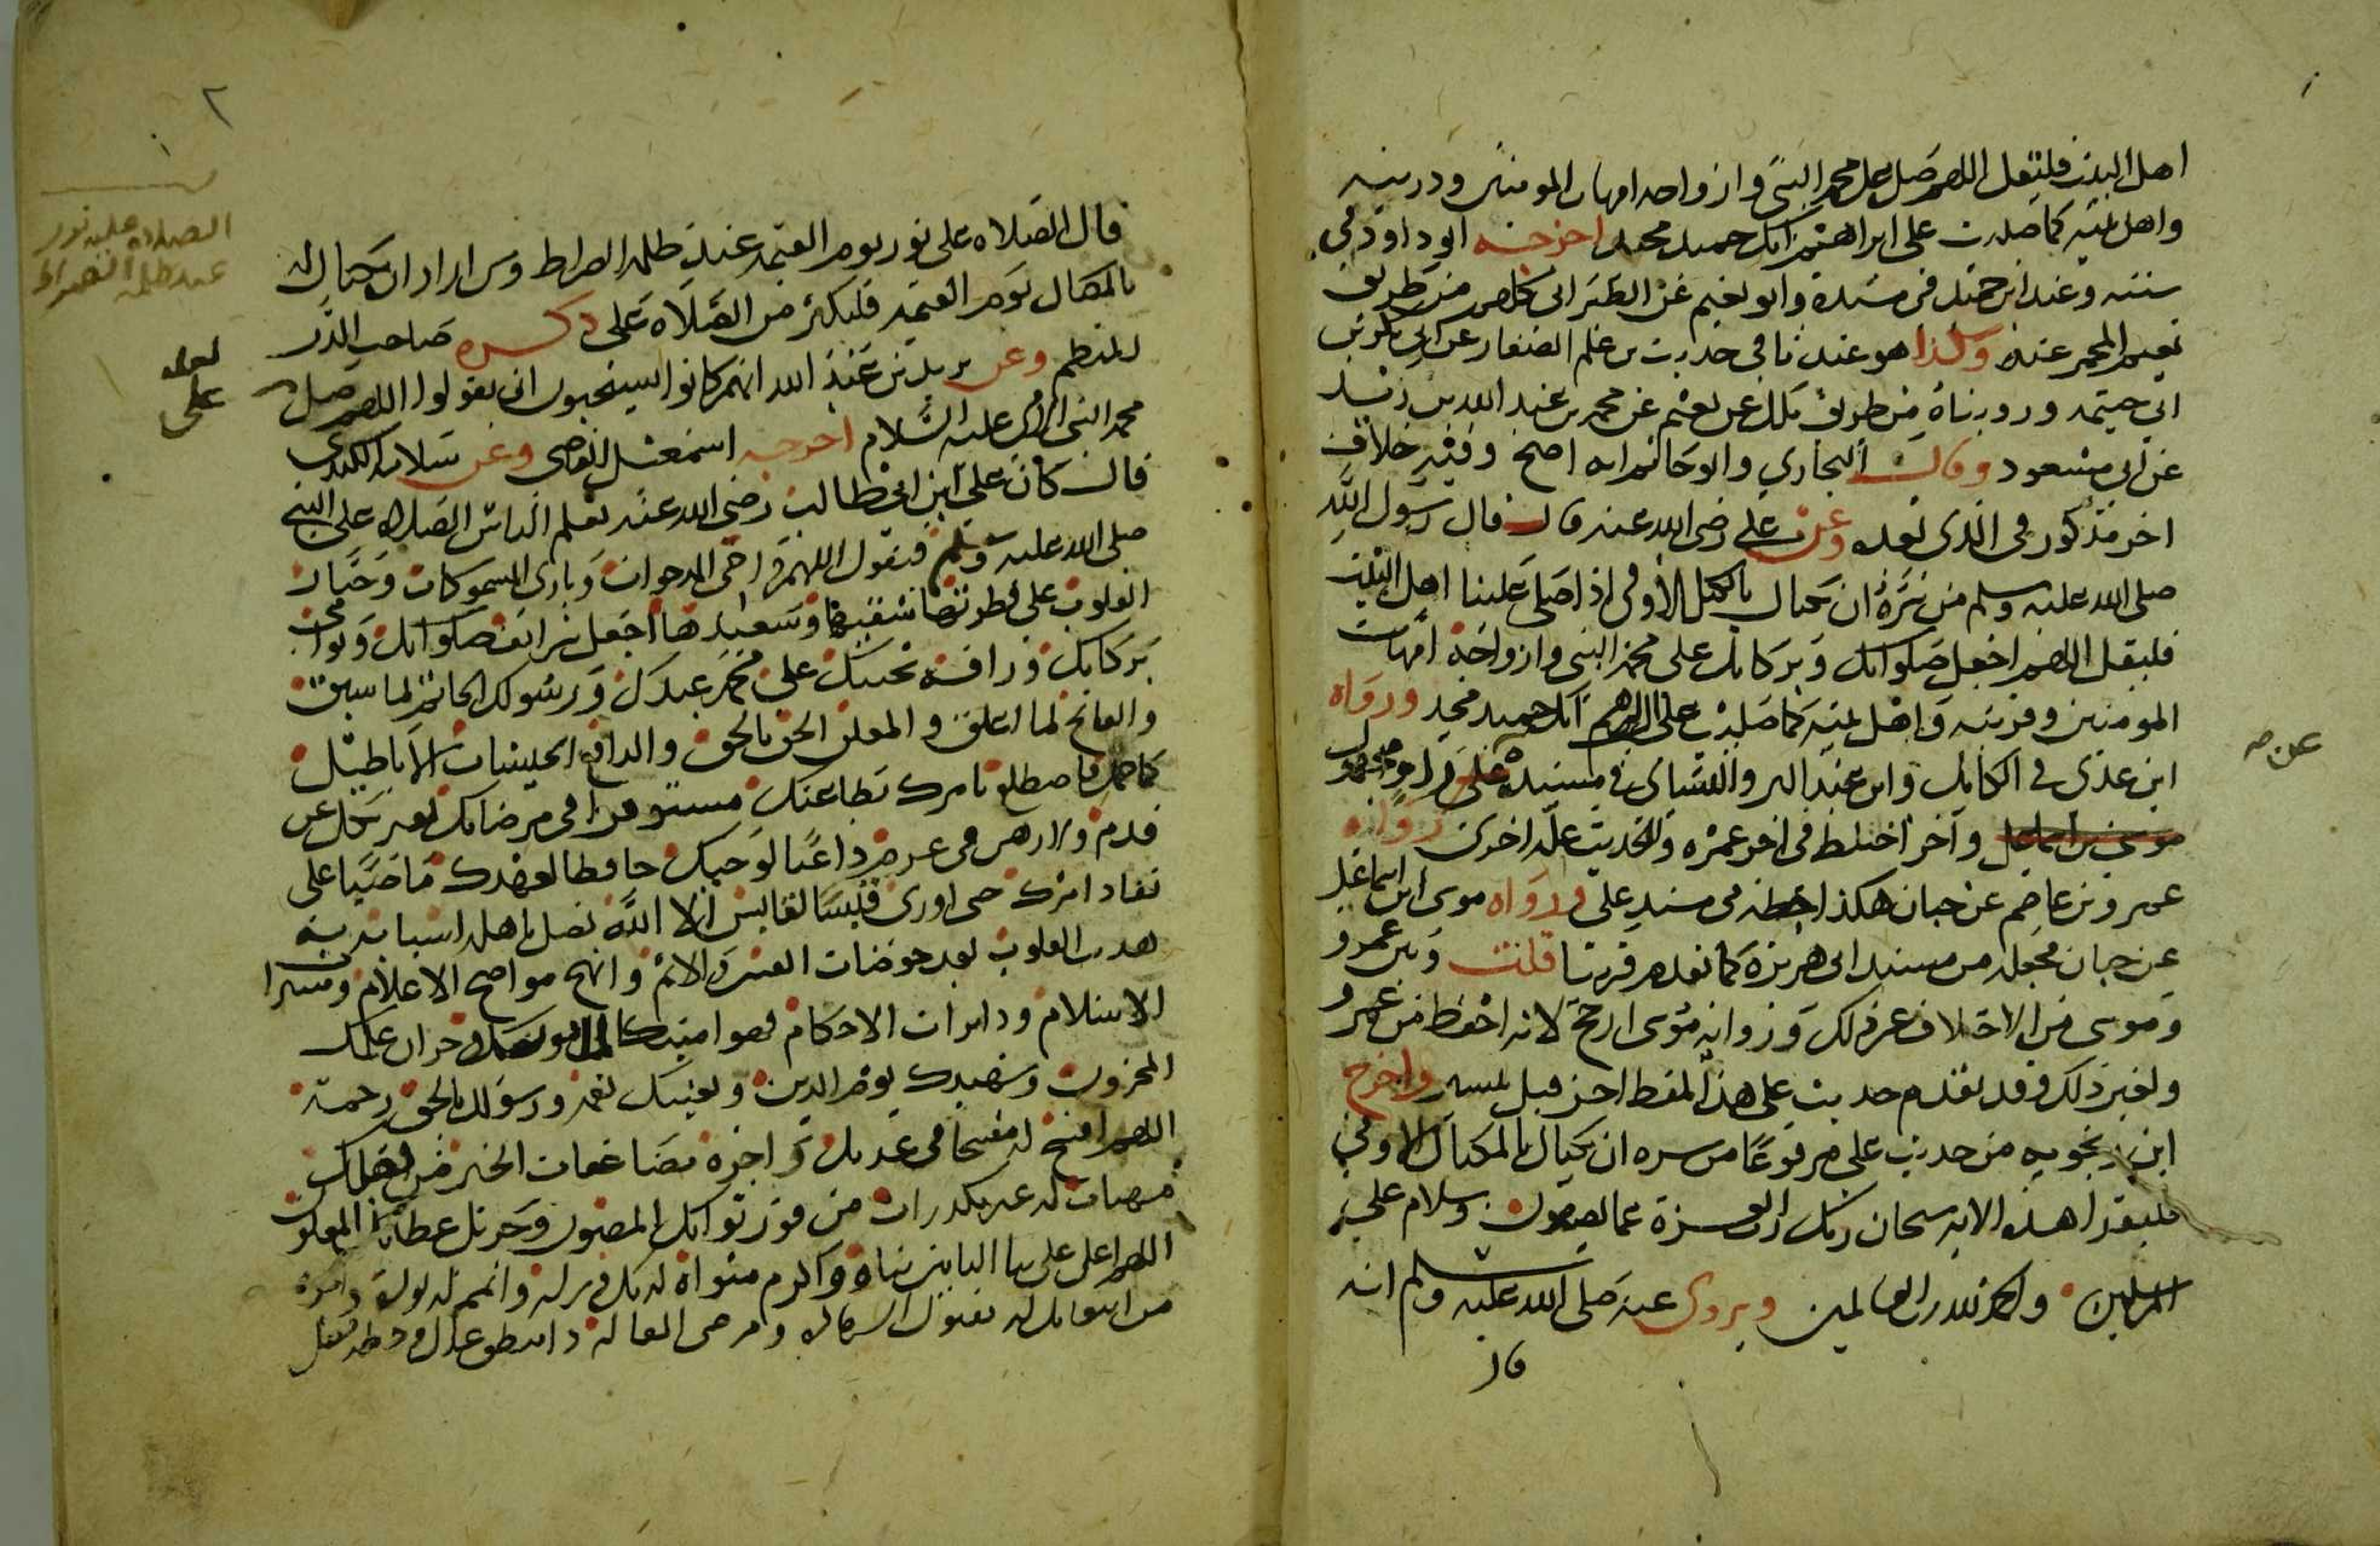 اهل البيت فليقل اللهم صل على محمد النبي وازواجه امهات المومنين وذريته
واهل بيته كما صليت على ابراهيم انك حميد مجيد اخرجه ابو داود في
سننه وعند ابن حميد في مسنده وابو نعيم عن الطبراني كلهم من طريق
نعيم المجمر عنه وكذا هو عندنا في حديث بن علم الصفار عن ابي بكر بن
ابي خيثمه ورويناه من طريق مالك عن نعيم عن محمد بن عبد الله بن زيد
عن ابي مسعود وقال البخاري وابو حاتم انه اصح وفيه خلاف
اخر مذكور في الذي بعده وعن علي رضي الله عنه قال قال رسول الله
صلى الله عليه وسلم من سره ان يكتال بالمكيال الاوفى اذا صلى علينا اهل البيت
فليقل اللهم اجعل صلواتك وبركاتك على محمد النبي وازواجه امهات
المومنين وذريته واهل بيته كما صليت على ابراهيم انك حميد مجيد ورواه
ابن عدي في الكامل وابن عبد البر والنسائي في مسند علي وفيه راو مجهول
عن صه
موسى بن اسماعيل واخر اختلط في اخر عمره وللحديث علة اخرى رواه
عمرو بن عاصم عن حبان هكذا اخطه في مسند علي ورواه موسى ابن اسماعيل
عن حبان فجعله من مسند ابي هريرة كما تقدم قريبا قلت وبين عمرو
وموسى من الاختلاف غير ذلك ورواية موسى ارجح لانه احفظ من عمرو
ولغير ذلك وقد تقدم حديث علي هذا بلفظ اخر قبل بيسير واخرج
ابن زنجويه من حديث علي مرفوعا من سره ان يكتال بالمكيال الاوفى
فليقرا هذه الاية سبحان ربك رب العزة عما يصفون وسلام على
المرسلين والحمد لله رب العالمين ويروى عنه صلى الله عليه وسلم انه
قال
٢
قال الصلاه علي نور يوم القيمه عند ظلمة الصراط ومن اراد ان يكتال له
الصلاة عليه نور
عند ظلمة الصراط
بالمكيال يوم القيمه فليكثر من الصلاه علي ذكره صاحب الدر
المنظم وعن يزيد بن عبد الله انهم كانوا يستحبون ان يقولوا اللهم صل
لعله
على
محمد النبي الامي عليه السلام اخرجه اسمعيل القاضي وعن سلامه الكندي
قال كان علي ابن ابي طالب رضي الله عنه يعلم الناس الصلاه على النبي
صلى الله عليه وسلم فيقول اللهم داحي المدحوات وباري المسموكات وجبار
القلوب على فطرتها شقيها وسعيدها اجعل شرايف صلواتك ونوامي
بركاتك ورافة تحننك على محمد عبدك ورسولك الخاتم لما سبق
والفاتح لما اغلق والمعلن الحق بالحق والدافع لجيشات الاباطيل
كما حمل فاضطلع بامرك بطاعتك مستوفزا في مرضاتك بغير نكل عن
قدم ولا وهن في عزم داعيا لوحيك حافظا لعهدك ماضيا على
نفاد امرك حتى اورى قبسا لقابس الا الله تصل باهله اسبابه به
هديت القلوب بعد خوضات الفتن والاثم وانهج موضحات الاعلام ومنيرات
الاسلام ودايرات الاحكام فهو امينك المامون وخازن علمك
المخزون وشهيدك يوم الدين وبعيثك نعمة ورسولك بالحق رحمة
اللهم افسح له مفسحا في عدنك واجزه مضاعفات الخير من فضلك
مهنات له غير مكدرات من فوز ثوابك المضنون وجزيل عطايك المعلول
اللهم اعل على بنا البانين بناه واكرم مثواه لديك ونزله واتمم له نوره واجزه
من ابتعاثك له مقبول الشهاده ومرضي المقالة ذا منطق عدل وخطة فصل